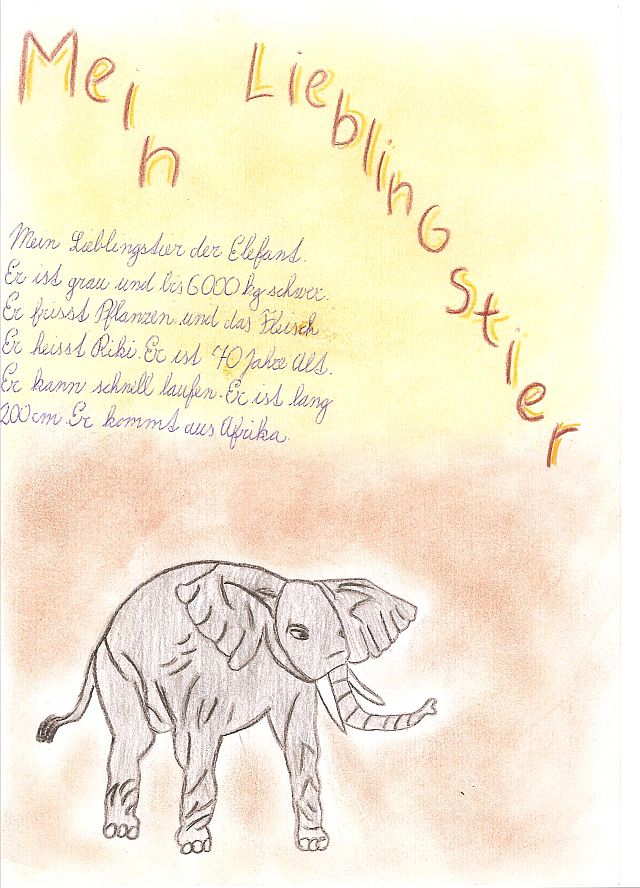 Mein Lieblingstier
Mein Lieblingstier der Elefant.
Er ist grau und bis 6000 kg schwer.
Er frisst Pflanzen und das Fleisch
Er heisst Riki. Er ist 70 Jahre alt.
Er kann schnill laufen. Er ist lang
200 cm. Er kommt aus Afrika.